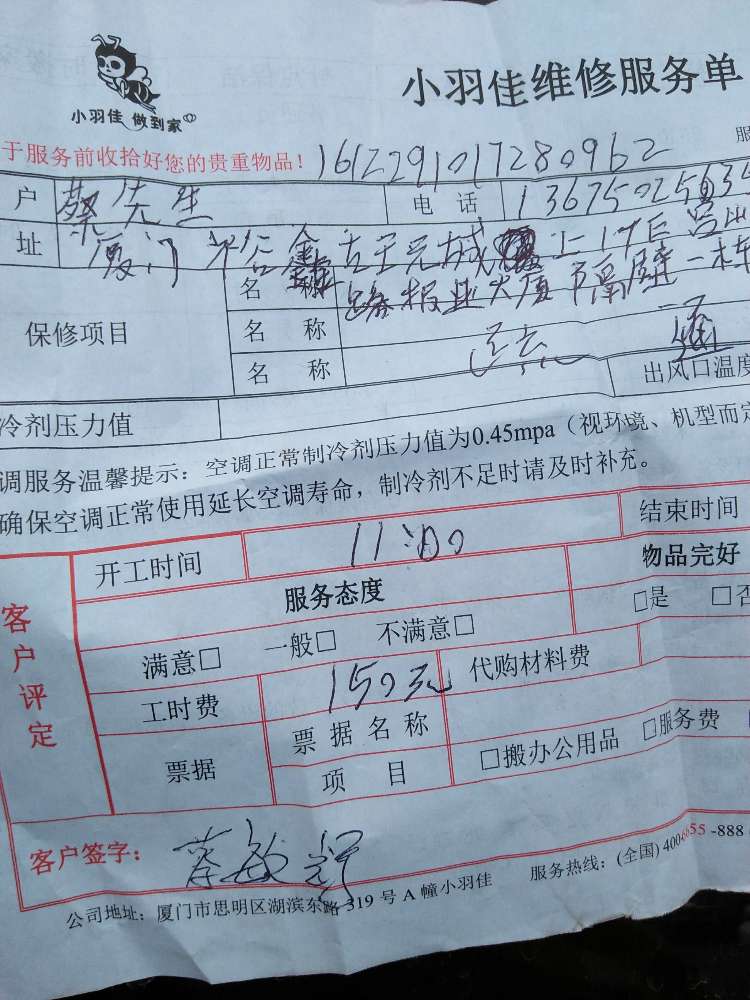 小羽佳维修服务单
小羽佳 做到家
服
于服务前收拾好您的贵重物品！ 1612291017280962
户 蔡先生 电 话 13675025634
址 厦门 上 吕
名 称 路报业大厦隔壁一栋
保修项目
名 称
名 称 通
冷剂压力值 出风口温度
调服务温馨提示：空调正常制冷剂压力值为0.45mpa（视环境、机型而定
确保空调正常使用延长空调寿命，制冷剂不足时请及时补充。
客户评定
开工时间 11:00 结束时间
服务态度 物品完好
满意□ 一般□ 不满意□ □是 □否
工时费 150元 代购材料费
票据 票据名称
项 目 □搬办公用品 □服务费
客户签字： 蔡敏
公司地址：厦门市思明区湖滨东路319号A幢小羽佳 服务热线：(全国) 400-6655-888